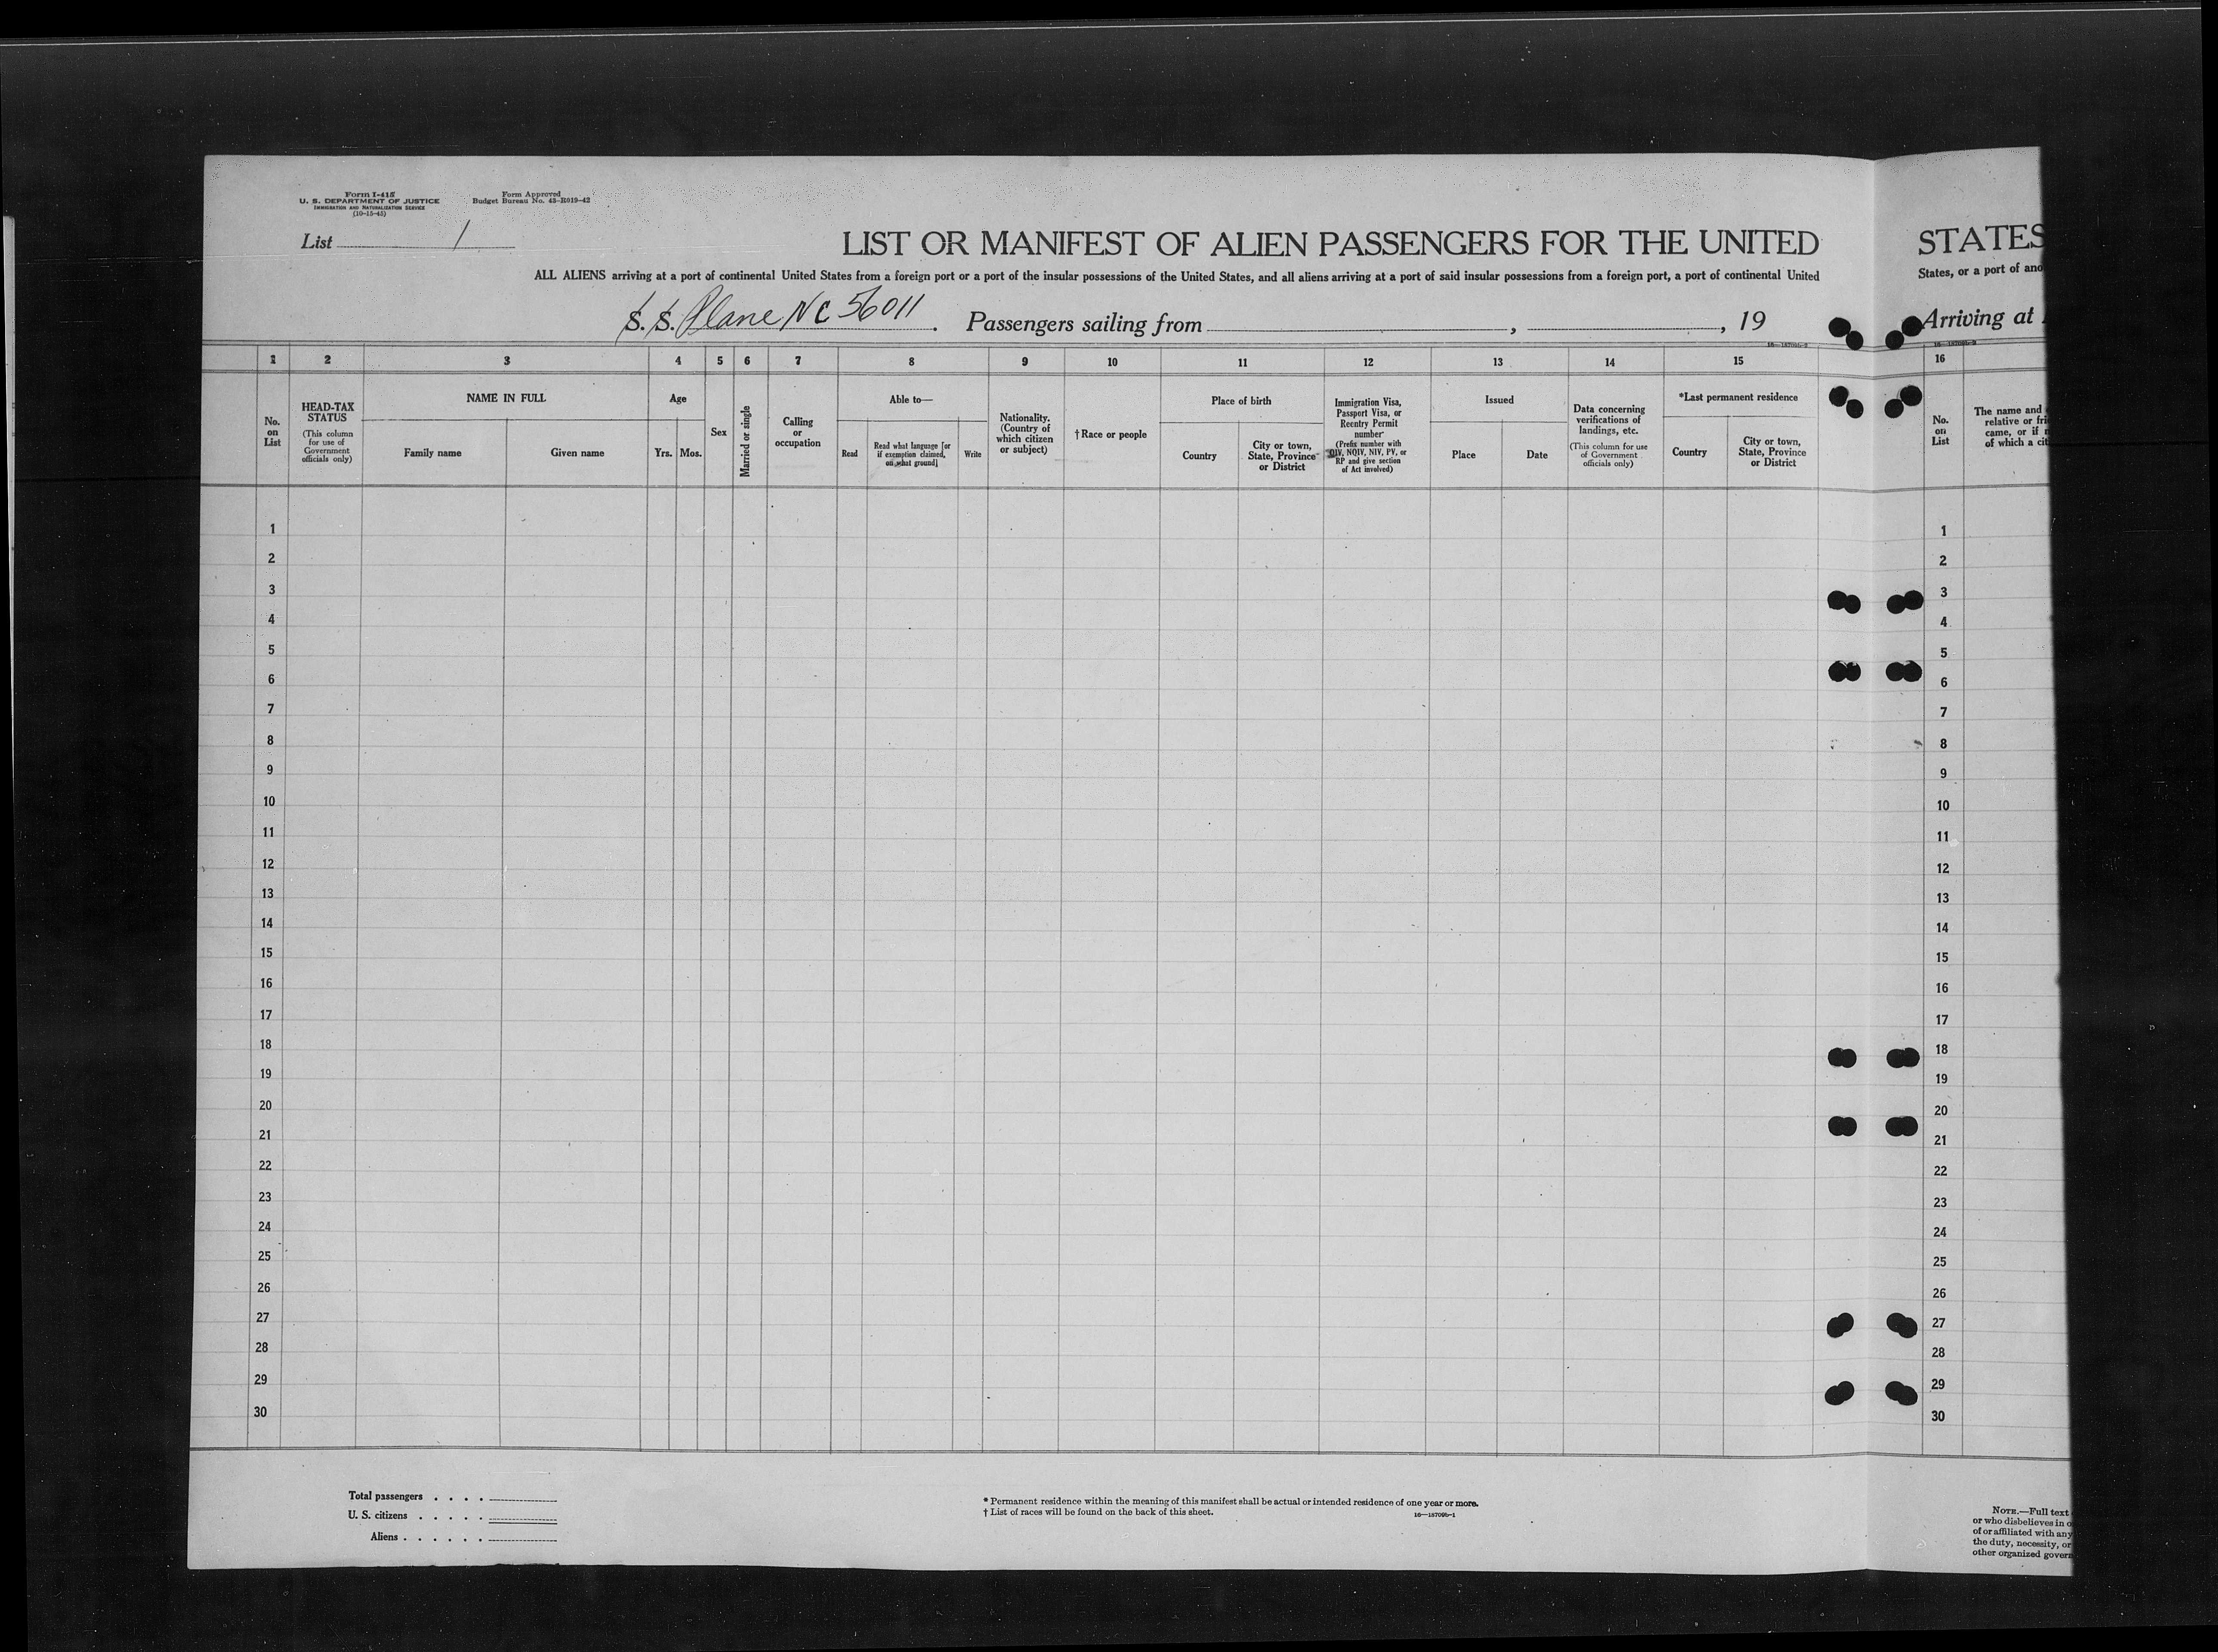 Form I-415
U. S. DEPARTMENT OF JUSTICE
IMMIGRATION AND NATURALIZATION SERVICE
(10-15-45)
Form Approved
Budget Bureau No. 43-R019-42
List 1
LIST OR MANIFEST OF ALIEN PASSENGERS FOR THE UNITED
ALL ALIENS arriving at a port of continental United States from a foreign port or a port of the insular possessions of the United States, and all aliens arriving at a port of said insular possessions from a foreign port, a port of continental United
S. S. Plane NC 56011. Passengers sailing from , , 19
16—18709b-2
1 2 3 4 5 6 7 8 9 10 11 12 13 14 15
No. on List
HEAD-TAX STATUS
(This column for use of Government officials only)
NAME IN FULL
Family name
Given name
Age
Yrs.
Mos.
Sex
Married or single
Calling or occupation
Able to—
Read
Read what language [or if exemption claimed, on what ground]
Write
Nationality. (Country of which citizen or subject)
†Race or people
Place of birth
Country
City or town, State, Province or District
Immigration Visa, Passport Visa, or Reentry Permit number
(Prefix number with QIV, NQIV, NIV, PV, or RP and give section of Act involved)
Issued
Place
Date
Data concerning verifications of landings, etc.
(This column for use of Government officials only)
*Last permanent residence
Country
City or town, State, Province or District
1
2
3
4
5
6
7
8
9
10
11
12
13
14
15
16
17
18
19
20
21
22
23
24
25
26
27
28
29
30
Total passengers . . . .
U. S. citizens . . . . .
Aliens . . . . . .
* Permanent residence within the meaning of this manifest shall be actual or intended residence of one year or more.
† List of races will be found on the back of this sheet.
16—18709b-1
STATES
States, or a port of ano
Arriving at
16
No. on List
The name and
relative or fri
came, or if
of which a cit
1
2
3
4
5
6
7
8
9
10
11
12
13
14
15
16
17
18
19
20
21
22
23
24
25
26
27
28
29
30
NOTE.—Full text
or who disbelieves in o
of or affiliated with any
the duty, necessity, or
other organized govern